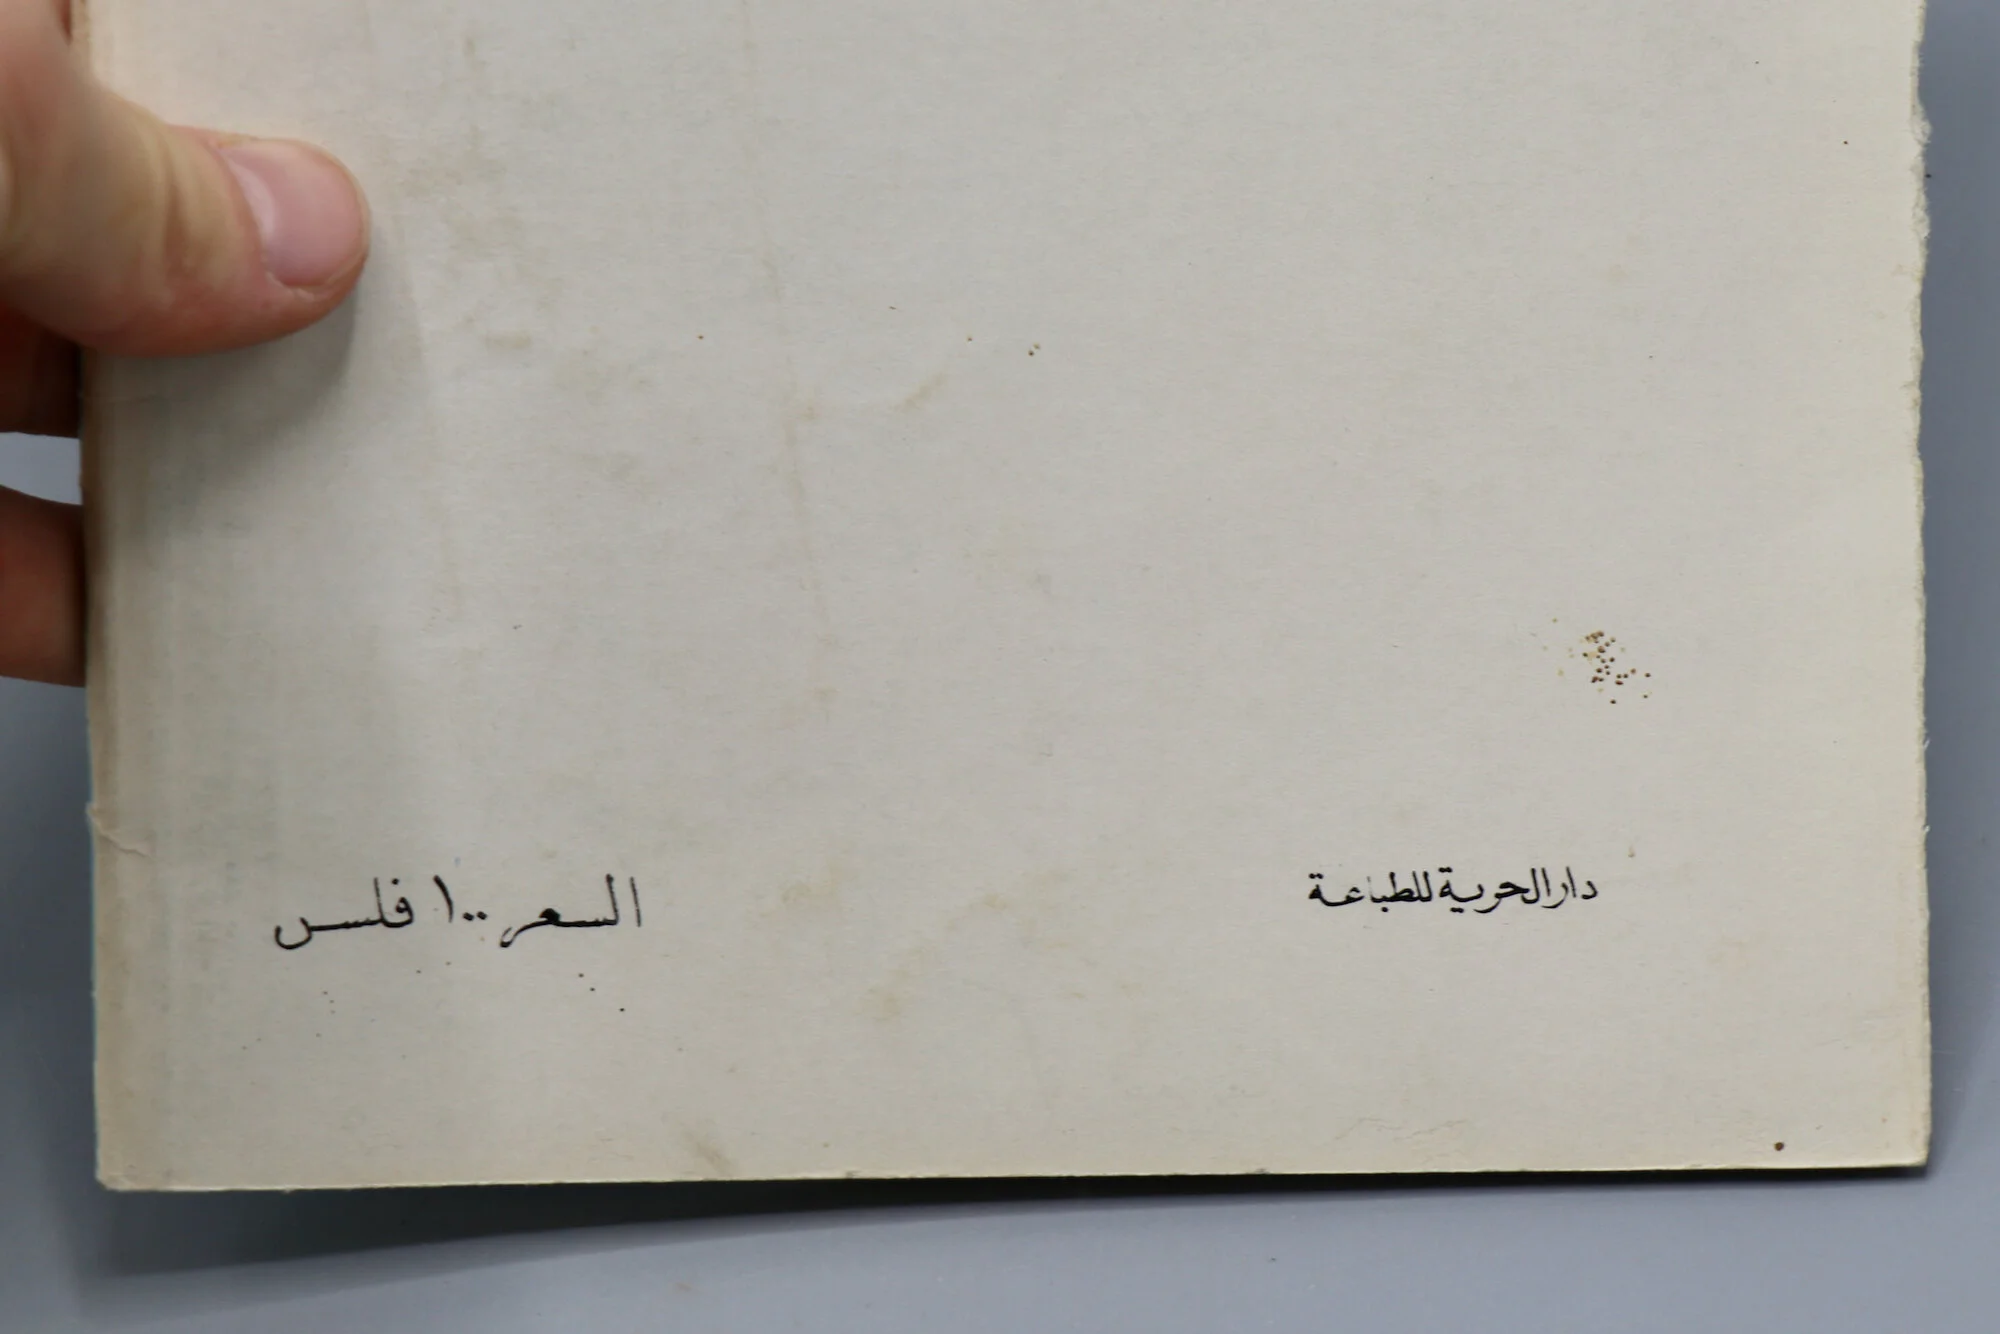 دار الحرية للطباعة
السعر ١٠٠ فلس